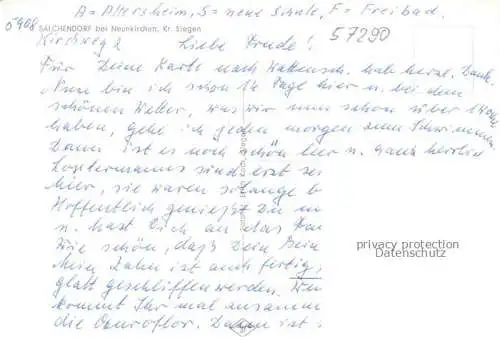 A = Altersheim, S = neue Schule, F = Freibad.
5908
57290
SALCHENDORF bei Neunkirchen, Kr. Siegen
Kirchweg 2 Liebe Trude!
Für Deine Karte nach hab herzl. Dank.
Nun bin ich schon 14 Tage hier u. bei dem
schönen Wetter, was wir nun schon über 14
haben, gehe ich jeden morgen zum Schwimmen
Dann ist es noch schön leer u. ganz herrlich
sind erst sei
hier, sie waren solange b
Hoffentlich genießt Du
u. hast Dich an das
Wie schön, daß Dein Bein
Mein Zahn ist auch fertig,
glatt geschliffen werden.
kommt Ihr mal zusamm
die Dann ist
privacy protection
Datenschutz